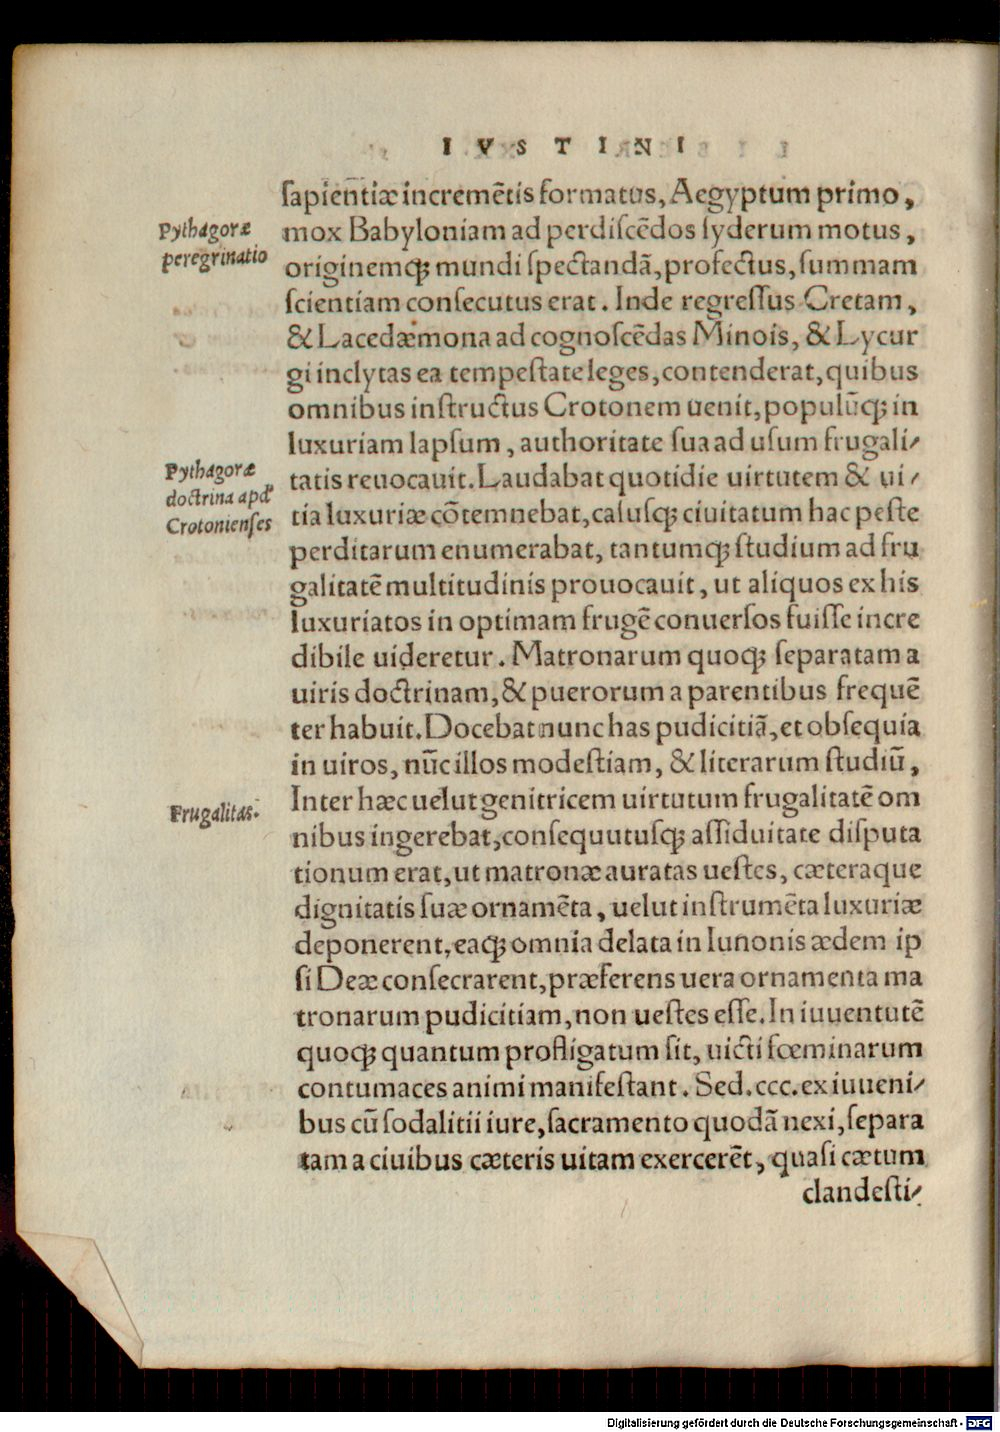 IVSTINI
sapientiæ incremẽtis formatus, Aegyptum primo,
Pythagoræ
peregrinatio
mox Babyloniam ad perdiscẽdos syderum motus,
originemq; mundi spectandã, profectus, summam
scientiam consecutus erat. Inde regressus Cretam,
& Lacedæmona ad cognoscẽdas Minois, & Lycur
gi inclytas ea tempestate leges, contenderat, quibus
omnibus instructus Crotonem uenit, populũq; in
luxuriam lapsum, authoritate sua ad usum frugali/
Pythagoræ
doctrina apđ
Crotonienses
tatis reuocauit. Laudabat quotidie uirtutem & ui/
tia luxuriæ cõtemnebat, casusq; ciuitatum hac peste
perditarum enumerabat, tantumq; studium ad fru
galitatẽ multitudinis prouocauit, ut aliquos ex his
luxuriatos in optimam frugẽ conuersos fuisse incre
dibile uideretur. Matronarum quoq; separatam a
uiris doctrinam, & puerorum a parentibus frequẽ
ter habuit. Docebat nunc has pudicitiã, et obsequia
in uiros, nũc illos modestiam, & literarum studiũ,
Frugalitas.
Inter hæc uelut genitricem uirtutum frugalitatẽ om
nibus ingerebat, consequutusq; assiduitate disputa
tionum erat, ut matronæ auratas uestes, cæteraque
dignitatis suæ ornamẽta, uelut instrumẽta luxuriæ
deponerent, eaq; omnia delata in Iunonis ædem ip
si Deæ consecrarent, præferens uera ornamenta ma
tronarum pudicitiam, non uestes esse. In iuuentutẽ
quoq; quantum profligatum sit, uicti fœminarum
contumaces animi manifestant. Sed. ccc. ex iuueni/
bus cũ sodalitii iure, sacramento quodã nexi, separa
tam a ciuibus cæteris uitam exercerẽt, quasi cætum
clandesti/
Digitalisierung gefördert durch die Deutsche Forschungsgemeinschaft - DFG